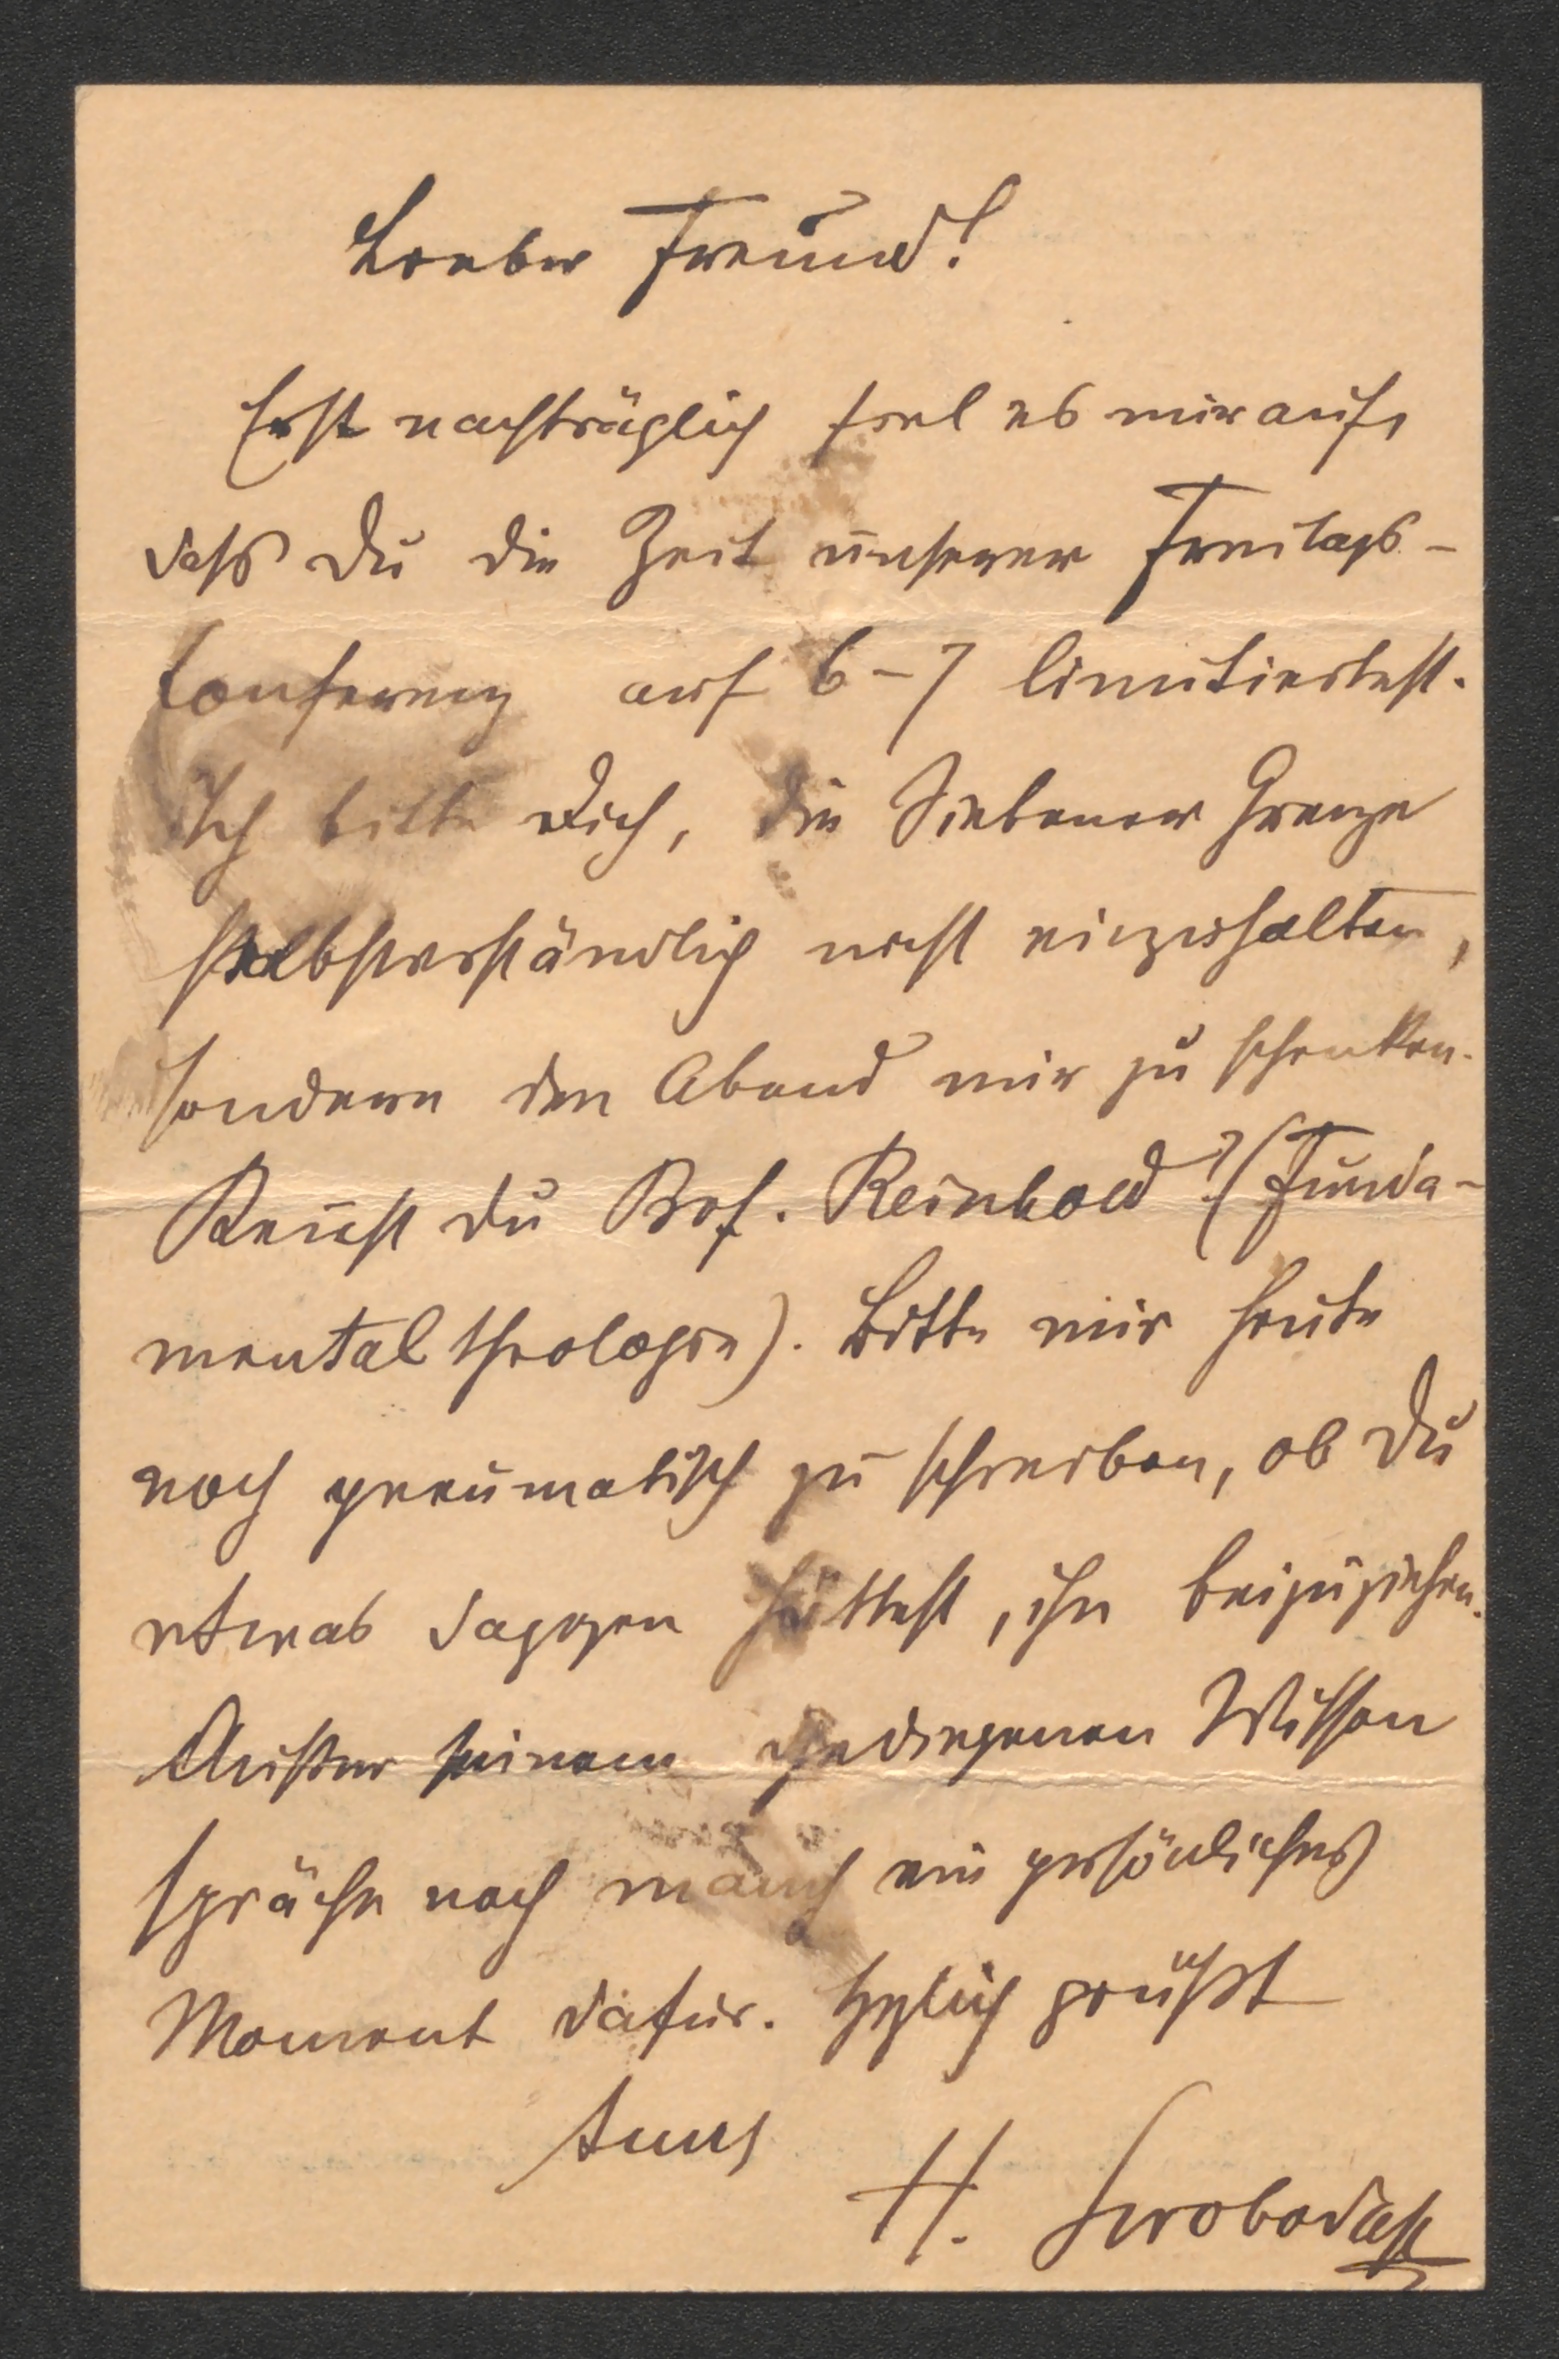 Lieber Freund!
Erst nachträglich fiel es mir auf,
daß Du die Zeit unserer Freitags-
conferenz auf 6-7 limitiertest.
Ich bitte Dich, die Siebener Grenze
selbstverständlich nicht einzuhalten,
sondern den Abend mir zu schenken.
Kennst Du Prof. Reinhold? (Funda-
mentaltheologie). Bitte mir heute
noch pneumatisch zu schreiben, ob Du
etwas dagegen hättest, ihn beizuziehen.
Außer seinem gediegenen Wissen
spräche noch manch ein persönliches
Moment dafür. Hzlich grüßt
H. Swoboda